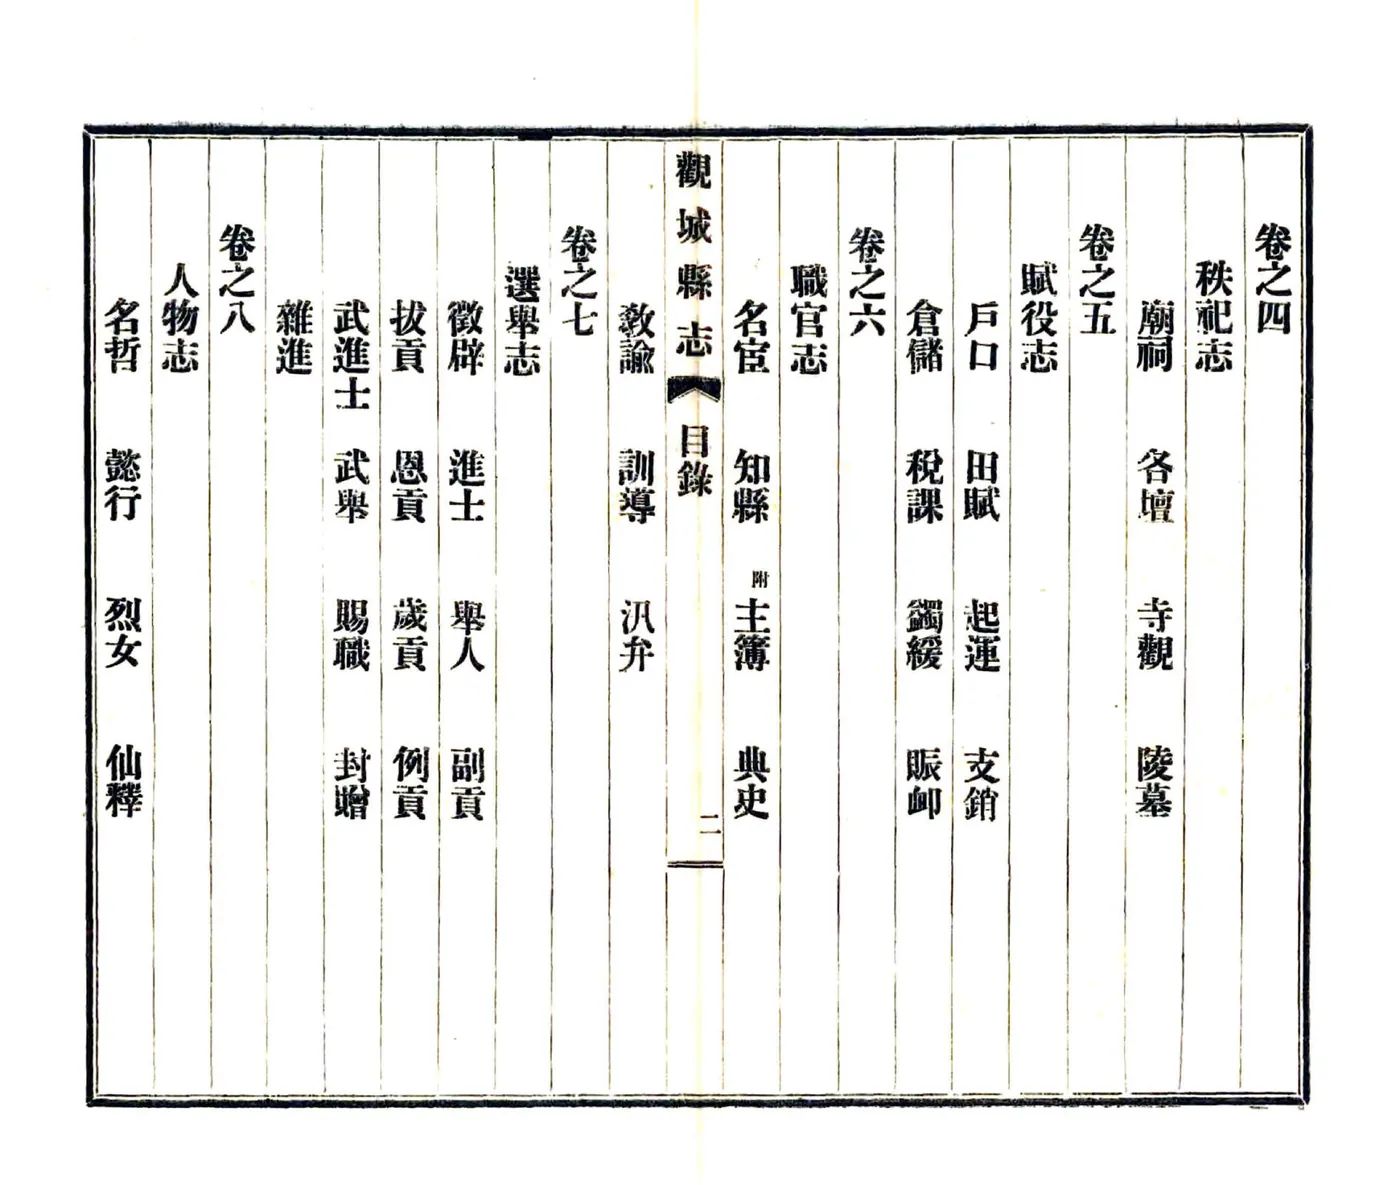 卷之四
秩祀志
廟祠 各壇 寺觀 陵墓
卷之五
賦役志
戶口 田賦 起運 支銷
倉儲 稅課 蠲緩 賑卹
卷之六
職官志
名宦 知縣 附主簿 典史
觀城縣志 目錄 二
教諭 訓導 汛弁
卷之七
選舉志
徵辟 進士 舉人 副貢
拔貢 恩貢 歲貢 例貢
武進士 武舉 賜職 封贈
雜進
卷之八
人物志
名哲 懿行 烈女 仙釋